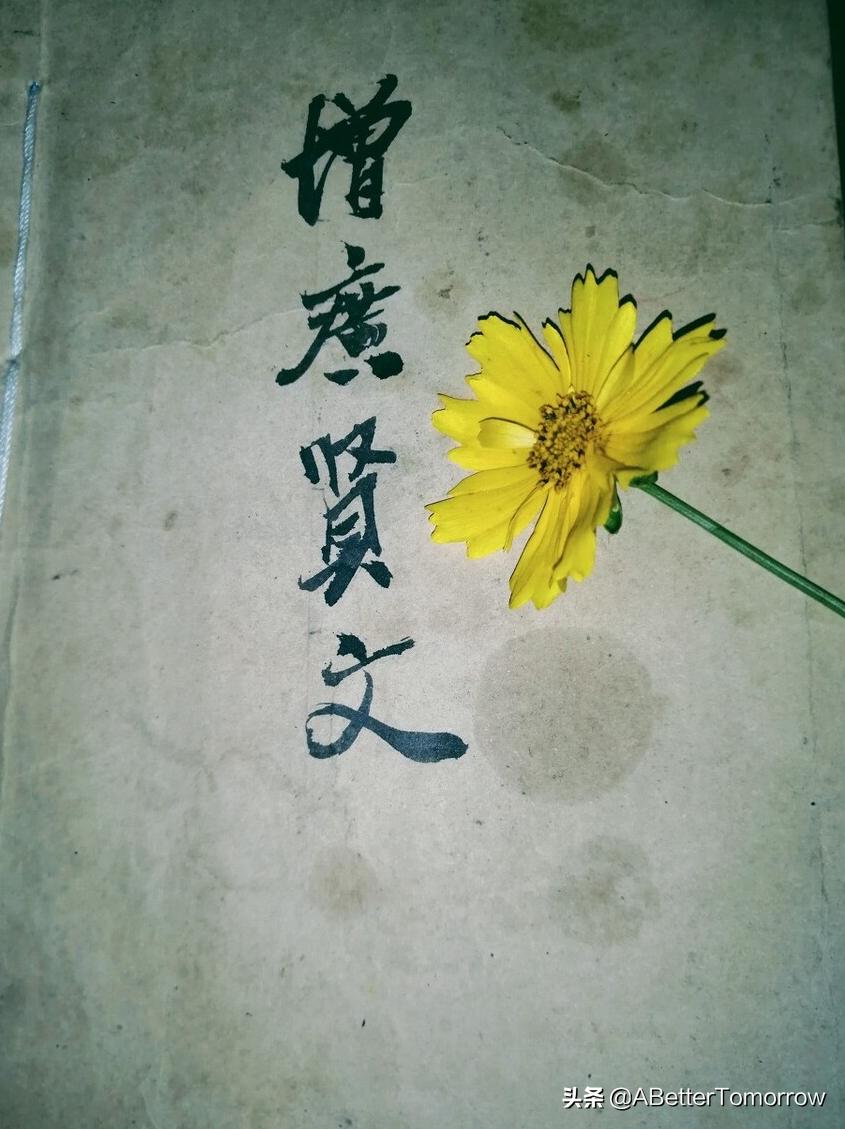 增廣賢文
头条 @ABetterTomorrow